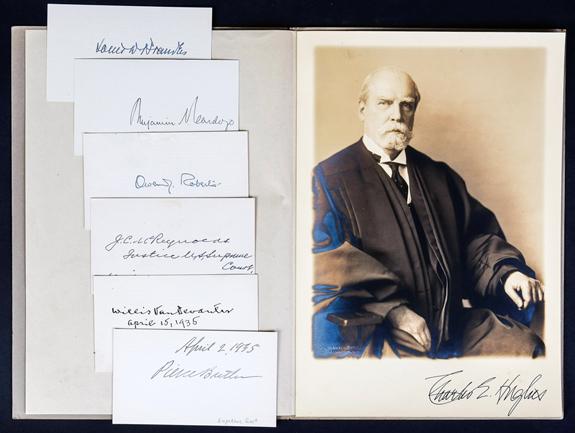 Louis D. Brandeis
Benjamin N Cardozo
Owen J. Roberts
J.C. McReynolds
Justice US Supreme
Court.
Willis Van Devanter
April 15, 1935
April 2 1935
Pierce Butler
Charles E. Hughes